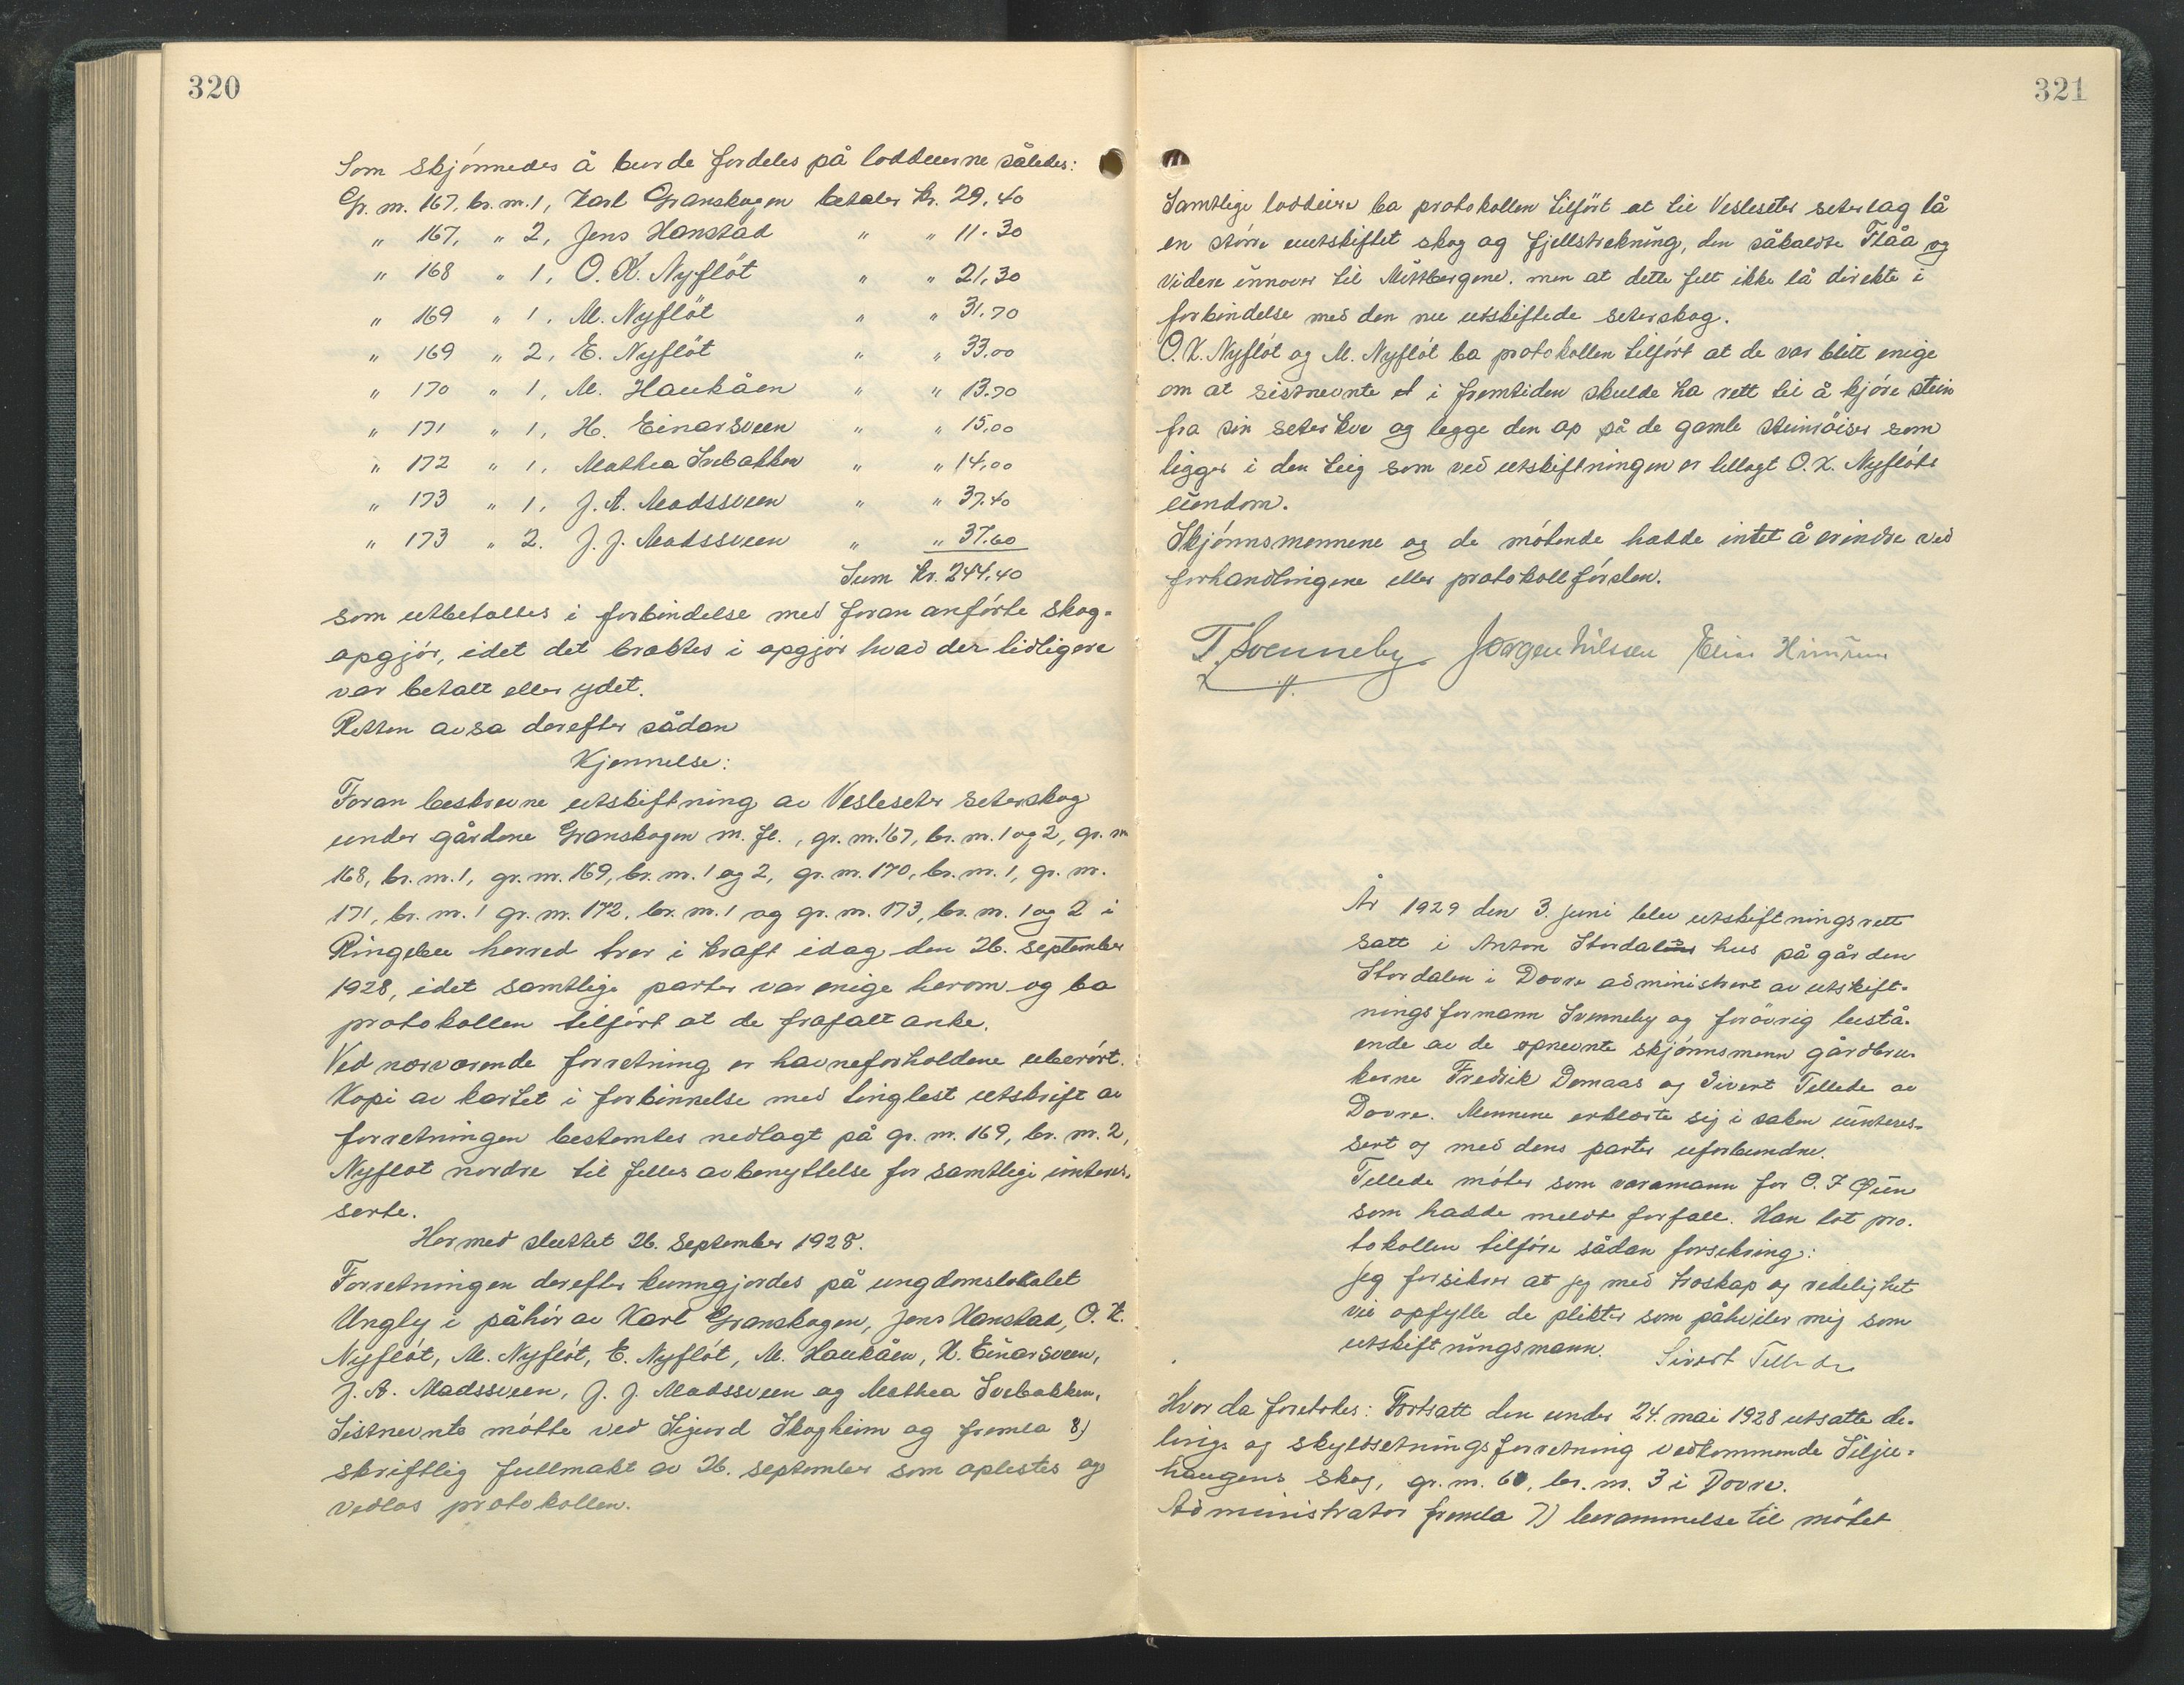 320
Som skjønnedes å burde fordeles på loddeierne således:
Gr. nr. 167, br. nr. 1, Karl Granskogen betaler kr. 29,40
" 167, " 2, Jens Hanstad " " 11.30
" 168 " 1, O. K. Nyfløt " " 21,30
" 169 " 1, M. Nyfløt " " 31.70
" 169 " 2, E. Nyfløt " " 33.00
" 170 " 1, M. Haukåen " " 13.70
" 171 " 1, H. Einarsveen " " 15,00
" 172 " 1, Mathea Svebakken " " 14,00
" 173 " 1, J. A. Madssveen " " 37.40
" 173 " 2. J. J. Madssveen " " 37.60
Sum kr. 244,40
som utbetaltes i forbindelse med foran anførte skog-
opgjør, idet det braktes i opgjør hvad der tidligere
var betalt eller ydet.
Retten avsa derefter sådan
Kjennelse:
Foran beskrevne utskiftning av Vesleseter seterskog
under gårdene Granskogen m. fl., gr. nr. 167, br. nr. 1 og 2, gr. nr
168, br. nr. 1, gr. nr. 169, br. nr. 1 og 2, gr. nr. 170, br. nr. 1, gr. nr.
171, br. nr. 1 gr. nr. 172, br. nr. 1 og gr. nr. 173, br. nr. 1 og 2 i
Ringebu herred trer i kraft idag den 26. september
1928, idet samtlige parter var enige herom og ba
protokollen tilført at de frafalt anke.
Ved nærværende forretning er havneforholdene uberørt.
Kopi av kartet i forbinnelse med tinglest utskrift av
forretningen bestemtes nedlagt på gr. nr. 169, br. nr. 2,
Nyfløt nordre til felles avbenyttelse for samtlige interes-
serte.
Hermed sluttet 26. september 1928.
Forretningen derefter kunngjordes på ungdomslokalet
Ungly i påhør av Karl Granskogen, Jens Hanstad, O. K.
Nyfløt, M. Nyfløt, E. Nyfløt, M. Haukåen, H. Einarsveen,
J. A. Madssveen, J. J. Madssveen og Mathea Svebakken.
Sistnevnte møtte ved Sigurd Skogheim og fremla 8)
skriftlig fullmakt av 26. september som oplestes og
vedlas protokollen.
321
Samtlige loddeiere ba protokollen tilført at til Vesleseter seterlag lå
en større uutskiftet skog og fjellstrekning, den såkaldte Flåa og
videre innover til Mittbergene. men at dette felt ikke lå direkte i
forbindelse med den nu utskiftede seterskog.
O. K. Nyfløt og M. Nyfløt ba protokollen tilført at de var blitt enige
om at sistnevnte i fremtiden skulde ha rett til å kjøre stein
fra sin seterkve og legge den op på de gamle steinrøiser som
ligger i den teig som ved utskiftningen er tillagt O. K. Nyfløts
eiendom.
Skjønnsmennene og de møtende hadde intet å erindre ved
forhandlingene eller protokollførslen.
T. Svenneby Jørgen Nilssen Elias
År 1929 den 3. juni blev utskiftningsrett
satt i Anton Stordalens hus på gården
Stordalen i Dovre administrert av utskift-
ningsformann Svenneby og forøvrig bestå-
ende av de opnevnte skjønnsmenn gårdbru-
kerne Fredrik Domaas og Sivert Tellede av
Dovre. Mennene erklærte sig i saken uinteres-
sert og med dens parter uforbundne.
Tellede møter som varamann for O. I Øien
som hadde meldt forfall. Han lot pro-
tokollen tilføre sådan forsikring:
Jeg forsikrer at jeg med troskap og redelighet
vil opfylle de plikter som påhviler mig som
utskiftningsmann. Sivert Tellede
Hvor da foretokes: Fortsatt den under 24. mai 1928 utsatte de-
lings og skyldsetningsforretning vedkommende Silju-
haugens skog, gr. nr. 60, br. nr. 3 i Dovre.
Administrator fremla 7) berammelse til møtet